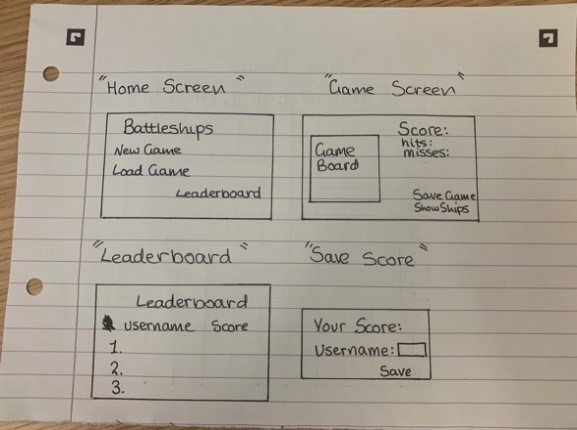 "Home Screen"
Battleships
New Game
Load Game
Leaderboard
"Game Screen"
Game
Board
Score:
hits:
misses:
Save Game
Show Ships
"Leaderboard"
Leaderboard
username Score
1.
2.
3.
"Save Score"
Your Score:
Username:
Save